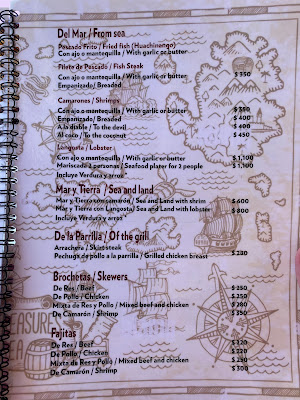 Del Mar / From sea
Pescado Frito / Fried fish (Huachinango)
Con ajo o mantequilla / With garlic or butter
Filete de Pescado / Fish Steak
Con ajo o mantequilla / With garlic or butter $ 350
Empanizado/ Breaded
Camarones / Shrimps
Con ajo o mantequilla / With garlic or butter $ 350
Empanizado/ Breaded $ 400
A la diabla / To the devil $ 400
Al coco / To the coconut $ 450
Langosta / Lobster
Con ajo o mantequilla / With garlic or butter $ 1,100
Mariscada 2 personas / Seafood plater for 2 people $ 1,100
Incluye Verdura y arroz
Mar y Tierra / Sea and land
Mar y Tierra con camarón / Sea and Land with shrim $ 600
Mar y Tierra con Langosta / Sea and Land with lobster $ 800
Incluye Verdura y arroz
De la Parrilla / Of the grill
Arrachera / Skirt steak
Pechuga de pollo a la parrilla / Grilled chicken breast $ 280
Brochetas / Skewers
De Res / Beef $ 250
De Pollo / Chicken $ 250
Mixta de Res y Pollo / Mixed beef and chicken $ 280
De Camarón / Shrimp $ 350
Fajitas
De Res / Beef $ 220
De Pollo / Chicken $ 220
Mixta de Res y Pollo / Mixed beef and chicken
De Camarón / Shrimp $ 300